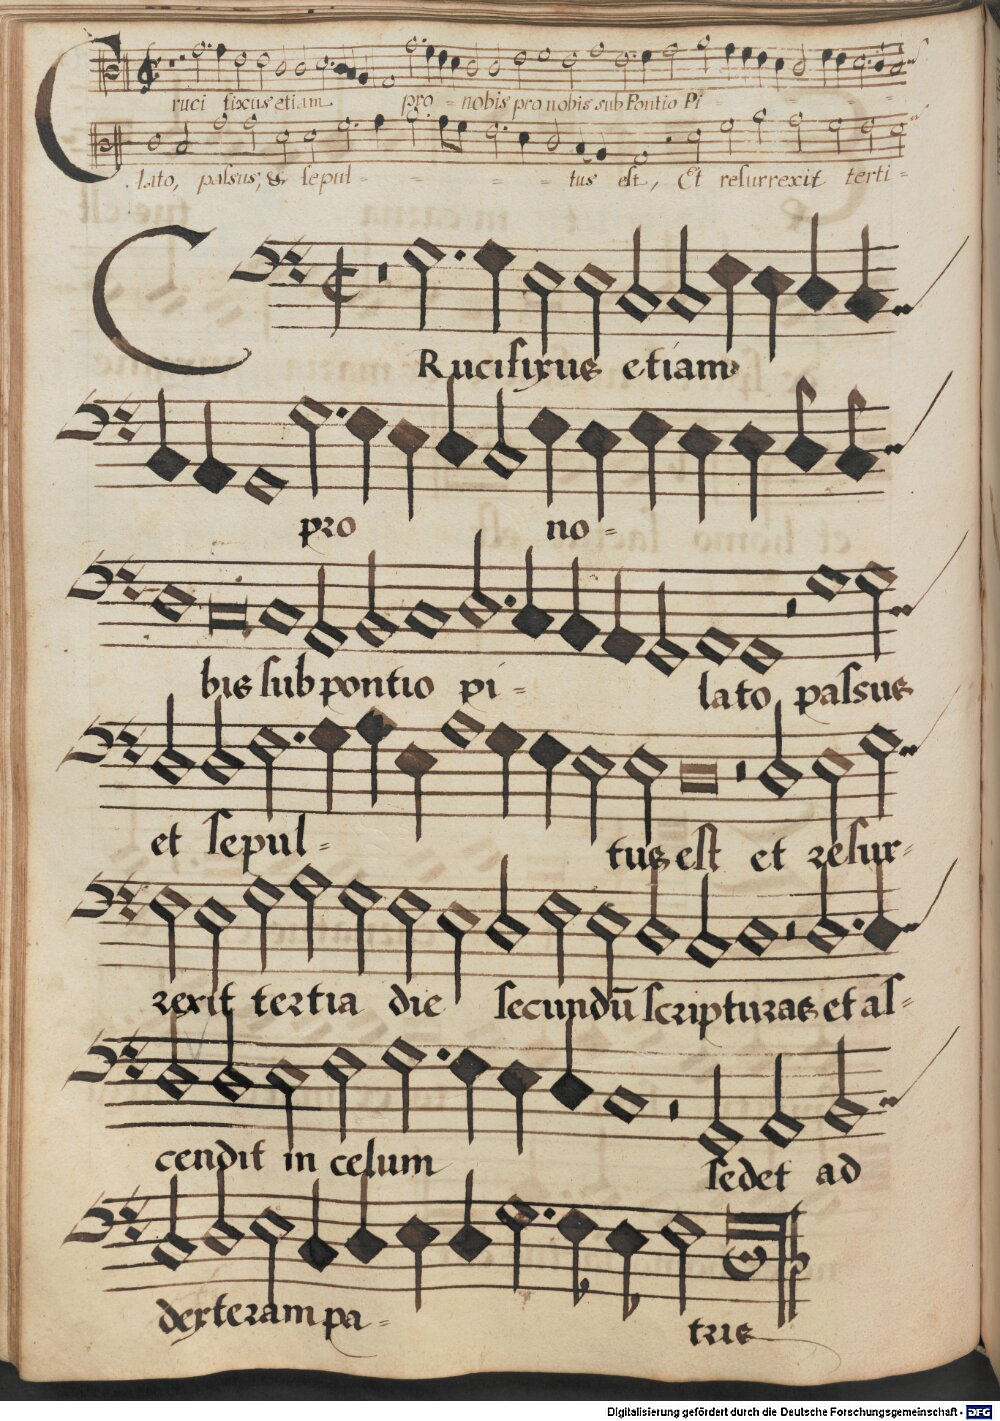 Cruci fixus etiam pro - nobis pro nobis sub Pontio Pi
lato, passus, & sepul - - - - - tus est, Et resurrexit terti -
CRucifixus etiam
pro no -
bis sub pontio pi - lato passus
et sepul - tus est et resur -
rexit tertia die secundū scripturas et as -
cendit in celum sedet ad
dexteram pa - tris
Digitalisierung gefördert durch die Deutsche Forschungsgemeinschaft - DFG